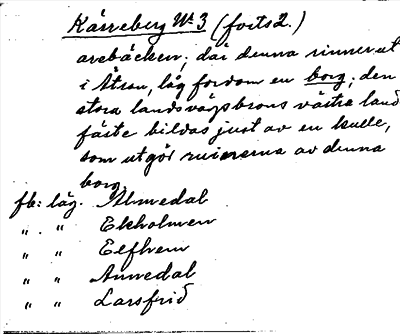 Kärreberg No 3 (forts 2.)
arebäcken; där denna rinner ut
i Ätran, låg fordom en borg; den
stora landsvägsbrons västra land
fäste bildas just av en kulle,
som utgör ruinerna av denna
borg.
fb: låg. Almedal
" . " Ekholmen
" " Elfhem
" " Annedal
" " Larsfrid